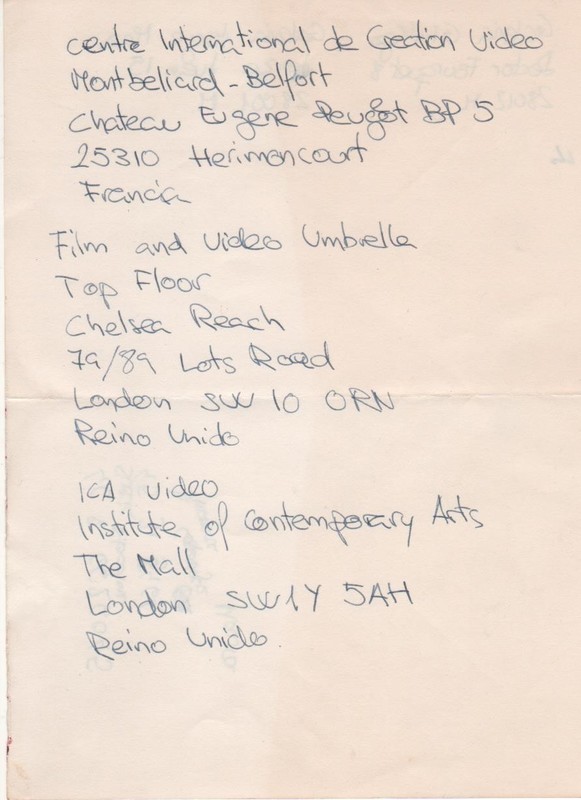 Centre International de Creation Video
Montbeliard - Belfort
Chateau Eugene Peugot BP 5
25310 Herimoncourt
Francia
Film and Video Umbrella
Top Floor
Chelsea Reach
79/89 Lots Road
London SW 10 ORN
Reino Unido
ICA Video
Institute of Contemporary Arts
The Mall
London SW1Y 5AH
Reino Unido.